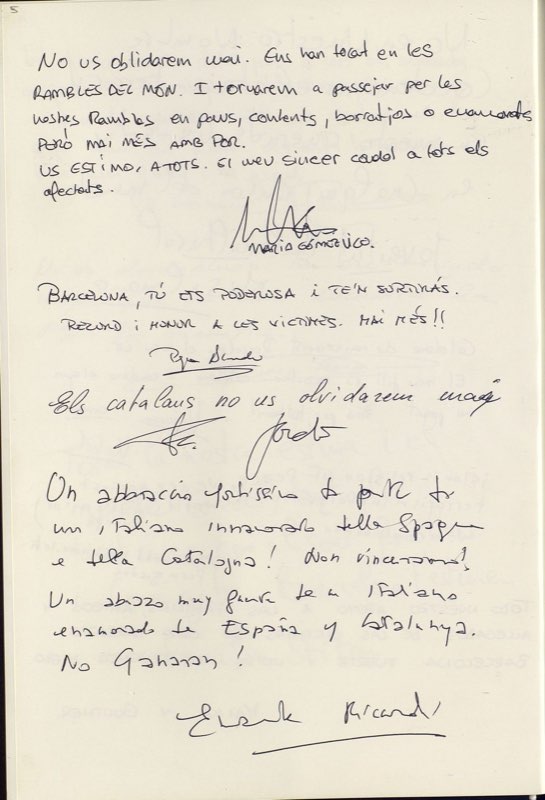 5
No us oblidarem mai. Ens han tocat en les
RAMBLES DEL MÓN. I tornarem a passejar per les
nostres Rambles en paus, contents, borratjos o enamorats
PERÒ MAI MÉS AMB POR.
US ESTIMO, A TOTS. El meu sincer condol a tots els
afectats.
MARIA GÓMEZ
BARCELONA, TÚ ETS PODEROSA i TE'N SURTIRÁS.
RECORD i HONOR A LES VICTIMES. MAI MÉS!!
Els catalans no us olvidarem mai
Jordi
Un abbraccio fortissimo da parte di
un italiano innamorato della Spagna
e della Catalogna! Non vinceranno!
Un abrazo muy fuerte de un Italiano
enamorado de España y Catalunya.
No Ganaran!
Ricardi